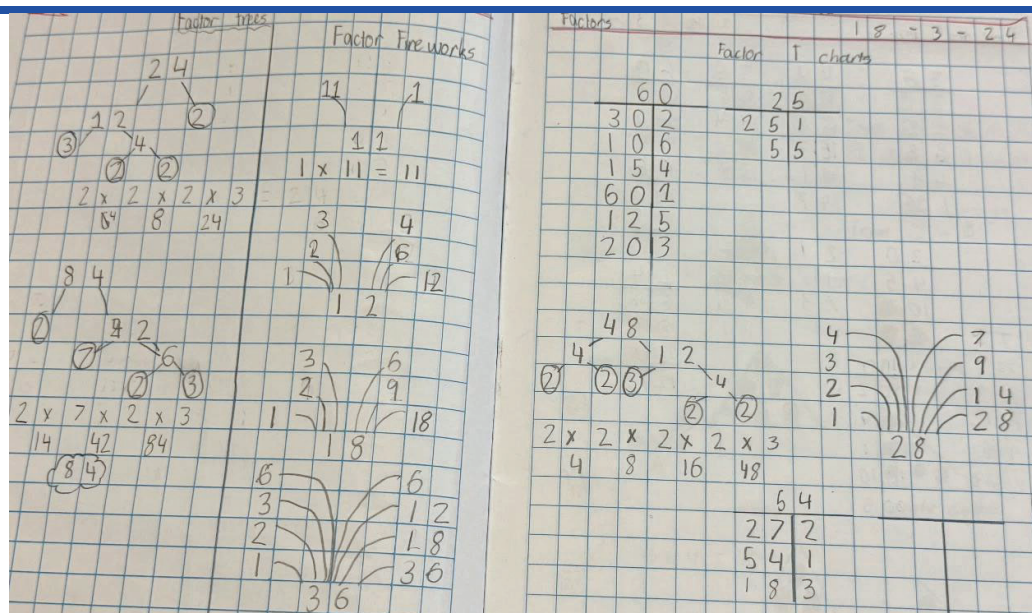 Factor trees
24
12 2
3 4
2 2
2 x 2 x 2 x 3 = 24
4 8 24
84
2 42
7 6
2 3
2 x 7 x 2 x 3
14 42 84
84
Factor Fireworks
11 1
11
1 x 11 = 11
3 4
2 6
1 12
12
3 6
2 9
1 18
18
6 6
3 12
2 18
1 36
36
Factors
18-3-24
Factor T charts
60
30 2
10 6
15 4
60 1
12 5
20 3
25
25 1
5 5
48
4 12
2 2 3 4
2 2
2 x 2 x 2 x 2 x 3
4 8 16 48
4 7
3 9
2 14
1 28
28
54
27 2
54 1
18 3